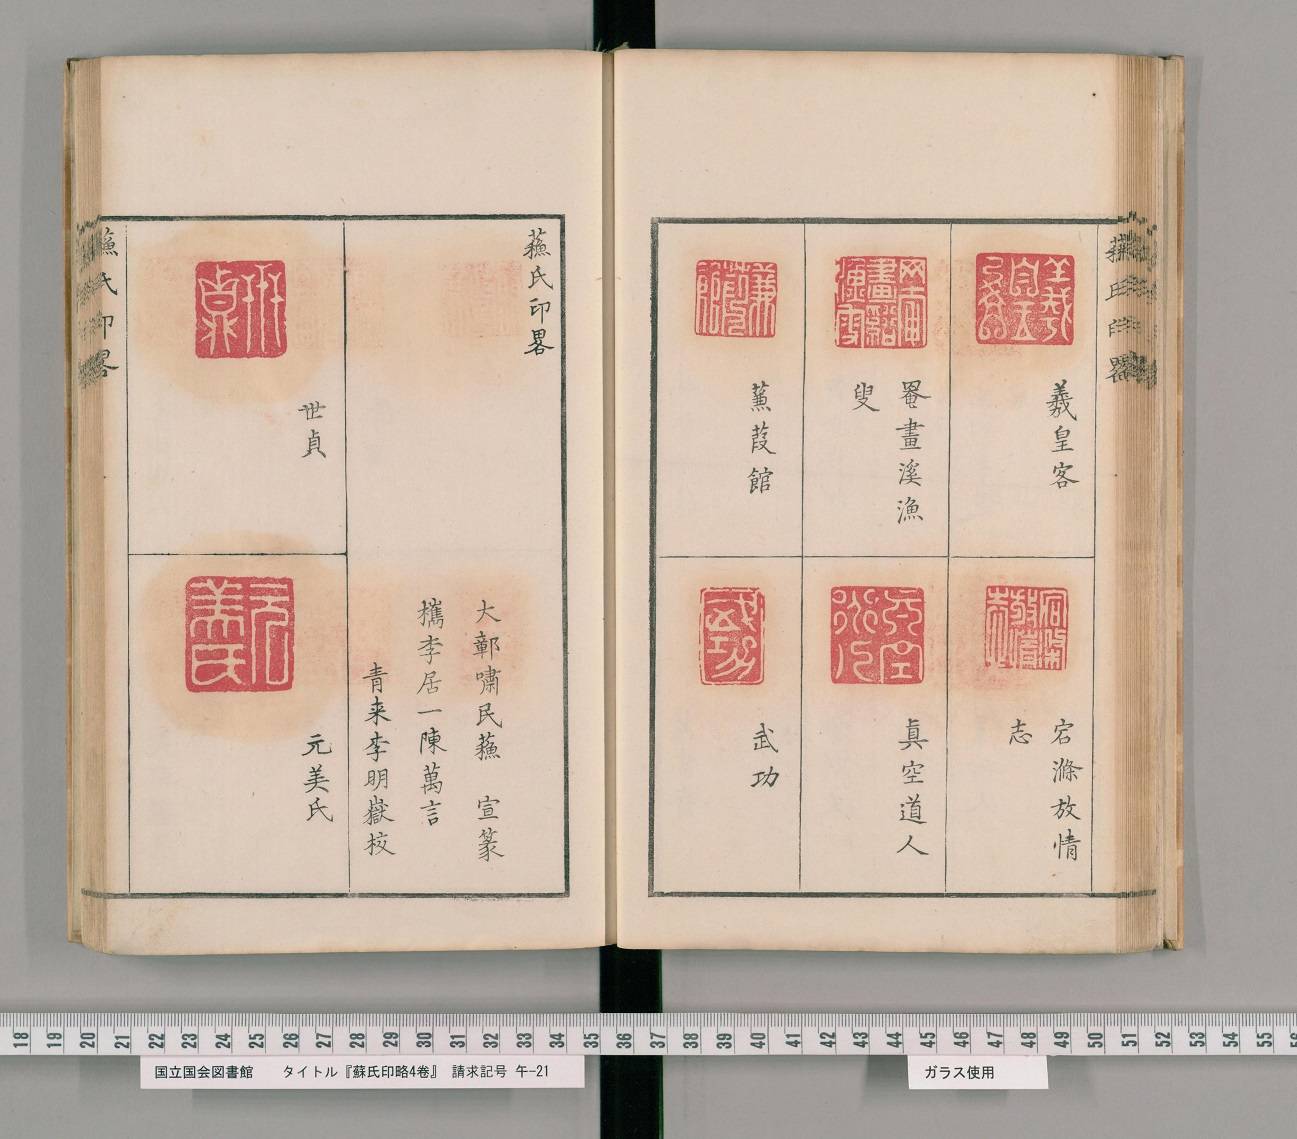 羲皇客
罨畫溪漁
叟
蒹葭館
宕滌放情
志
真空道人
武功
蘓氏印畧
大鄣嘯民蘓　宣篆
檇李居一陳萬言
青来李明嶽校
世貞
元美氏
蘓氏印畧
18 19 20 21 22 23 24 25 26 27 28 29 30 31 32 33 34 35 36 37 38 39 40 41 42 43 44 45 46 47 48 49 50 51 52 53 54 55
国立国会図書館　タイトル『蘇氏印略4巻』　請求記号 午-21
ガラス使用